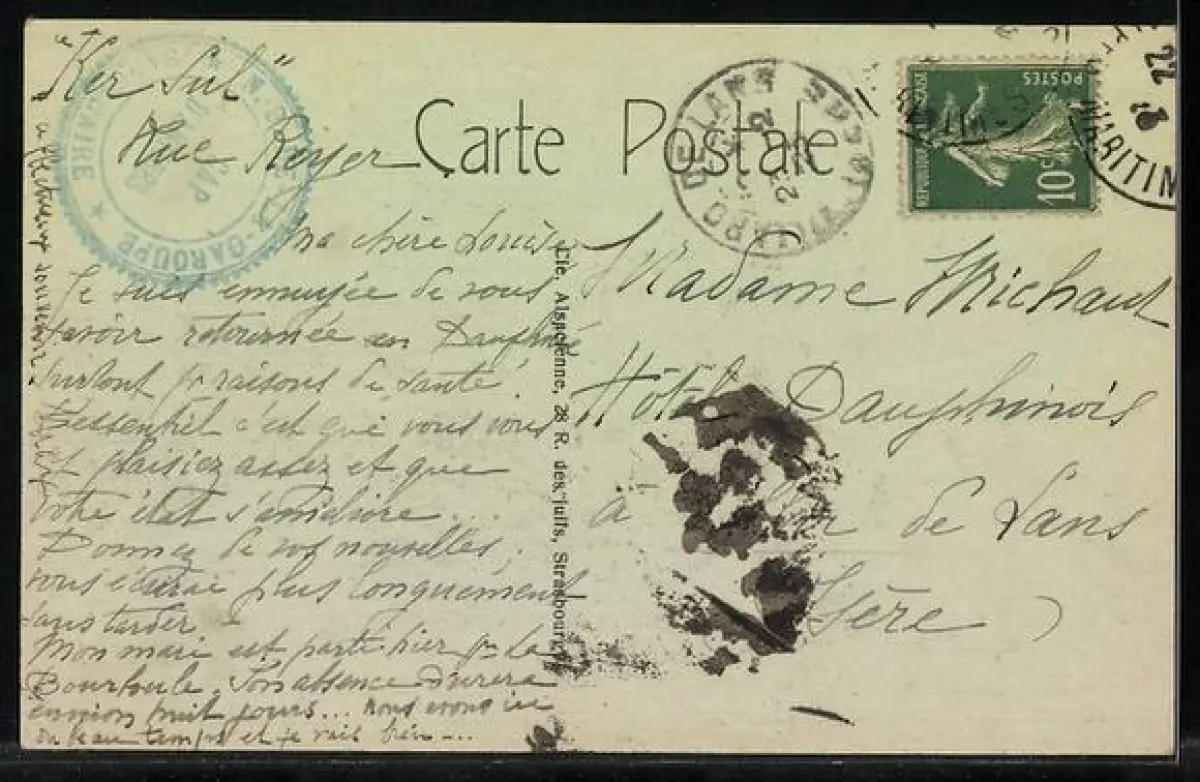 "Ker Sul"
Rue Reyer
Carte Postale
RÉPUBLIQUE FRANÇAISE
POSTES
10c
22
MARITIM
VILLARD DE LANS
GAROUPE
Ma chère Louise
Je suis ennuyée de vous
savoir retournée en Dauphiné
surtout pr raisons de santé
L'essentiel c'est que vous vous
plaisiez assez et que
votre état s'améliore...
Donnez de vos nouvelles,
vous écrirai plus longuement
sans tarder
Mon mari est parti hier pr La
Bourboule. Son absence durera
environ huit jours... nous avons eu
du beau temps et je vais bien...
affectueux souvenirs
Cie. Alsacienne, 28 R. des Juifs, Strasbourg
Madame Michaut
Hôtel Dauphinois
à de Lans
Isère